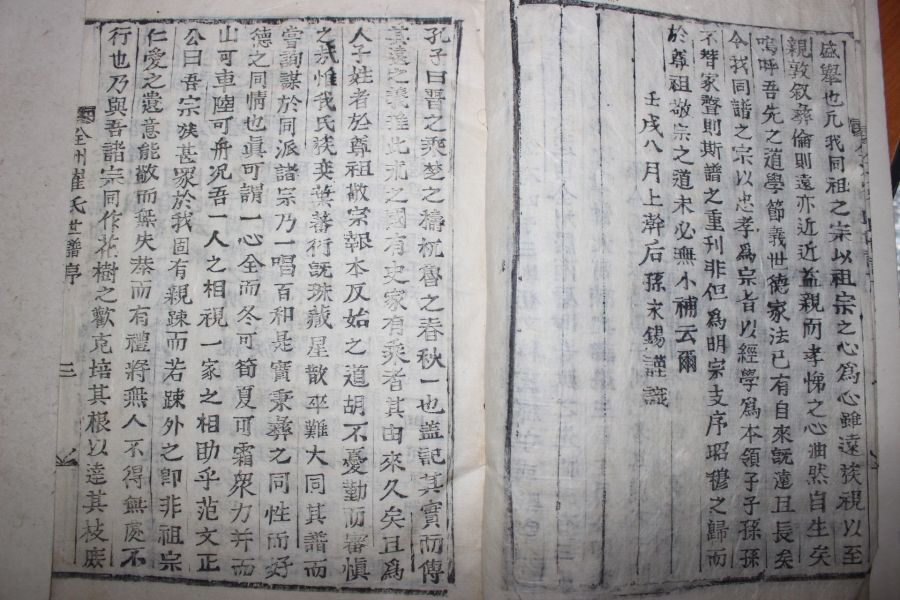 盛擧也凡我同祖之宗以祖宗之心爲心雖遠族視以至
親敦叙彛倫則遠亦近近益親而孝悌之心油然自生矣
嗚呼吾先之道學節義世德家法已有自來旣遠且長矣
今我同譜之宗以忠孝爲宗者以經學爲本領子子孫孫
不替家聲則斯譜之重刊非但爲明宗支序昭穆之歸而
於尊祖敬宗之道未必無小補云爾
壬戌八月上澣后孫永錫謹識
孔子曰晋之乘楚之檮杌魯之春秋一也盖記其實而傳
其遠之義推此求之國有史家有乘者其由來久矣且爲
人子姓者於尊祖敬宗報本反始之道胡不憂勤而審愼
之哉惟我氏族奕葉蕃衍旣珠藏星散卒難大同其譜而
嘗詢謀於同派諸宗乃一唱百和是實秉彛之同性而好
德之同情也眞可謂一心全而冬可筍夏可霜衆力幷而
山可車陸可舟况吾一人之相視一家之相助乎范文正
公曰吾宗族甚衆於我固有親踈而若踈外之卽非祖宗
仁愛之遺意能敬而無失恭而有禮將無人不得無處不
行也乃與吾諸宗同作花樹之歡克培其根以達其枝庶
全州崔氏世譜序 三